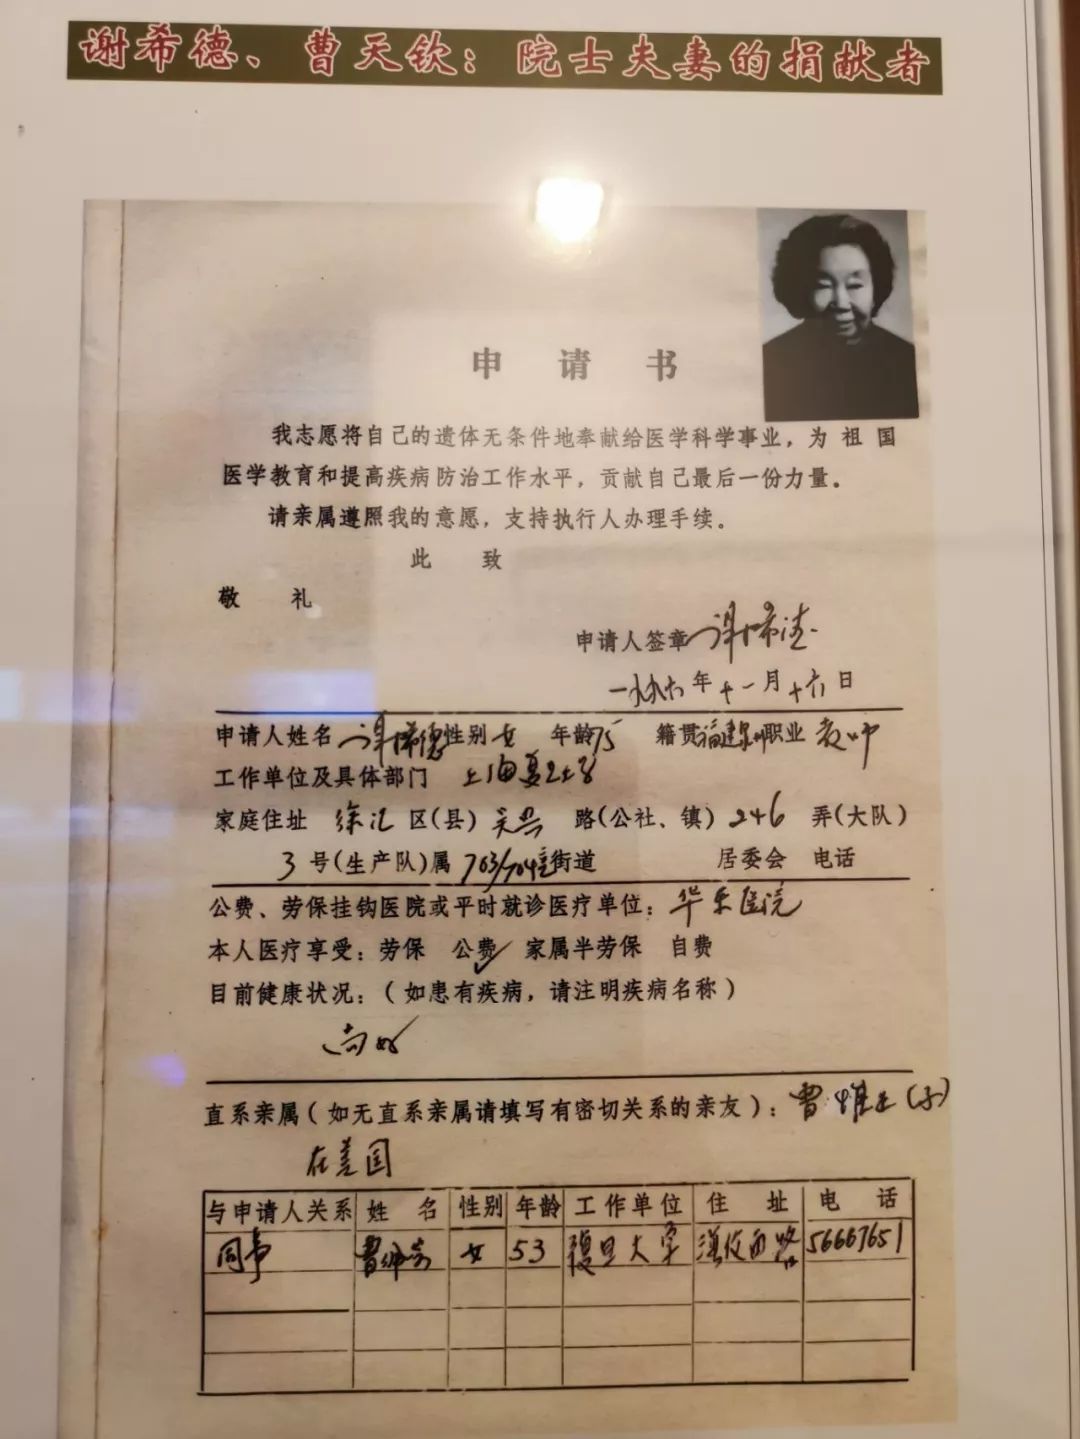 谢希德、曹天钦：院士夫妻的捐献者
申请书
我志愿将自己的遗体无条件地奉献给医学科学事业，为祖国
医学教育和提高疾病防治工作水平，贡献自己最后一份力量。
请亲属遵照我的意愿，支持执行人办理手续。
此 致
敬 礼
申请人签章 谢希德
一九九六年十一月十六日
申请人姓名 谢希德 性别 女 年龄 75 籍贯 福建泉州 职业 教师
工作单位及具体部门 上海复旦大学
家庭住址 徐汇 区(县) 吴兴 路(公社、镇) 246 弄(大队)
3 号(生产队)属 703/704室 街道 居委会 电话
公费、劳保挂钩医院或平时就诊医疗单位：华东医院
本人医疗享受：劳保 公费✓ 家属半劳保 自费
目前健康状况：(如患有疾病，请注明疾病名称)
尚好
直系亲属(如无直系亲属请填写有密切关系的亲友)：曹惟正(子)
在美国
与申请人关系 姓名 性别 年龄 工作单位 住址 电话
同事 曹佩芳 女 53 復旦大学 56667651